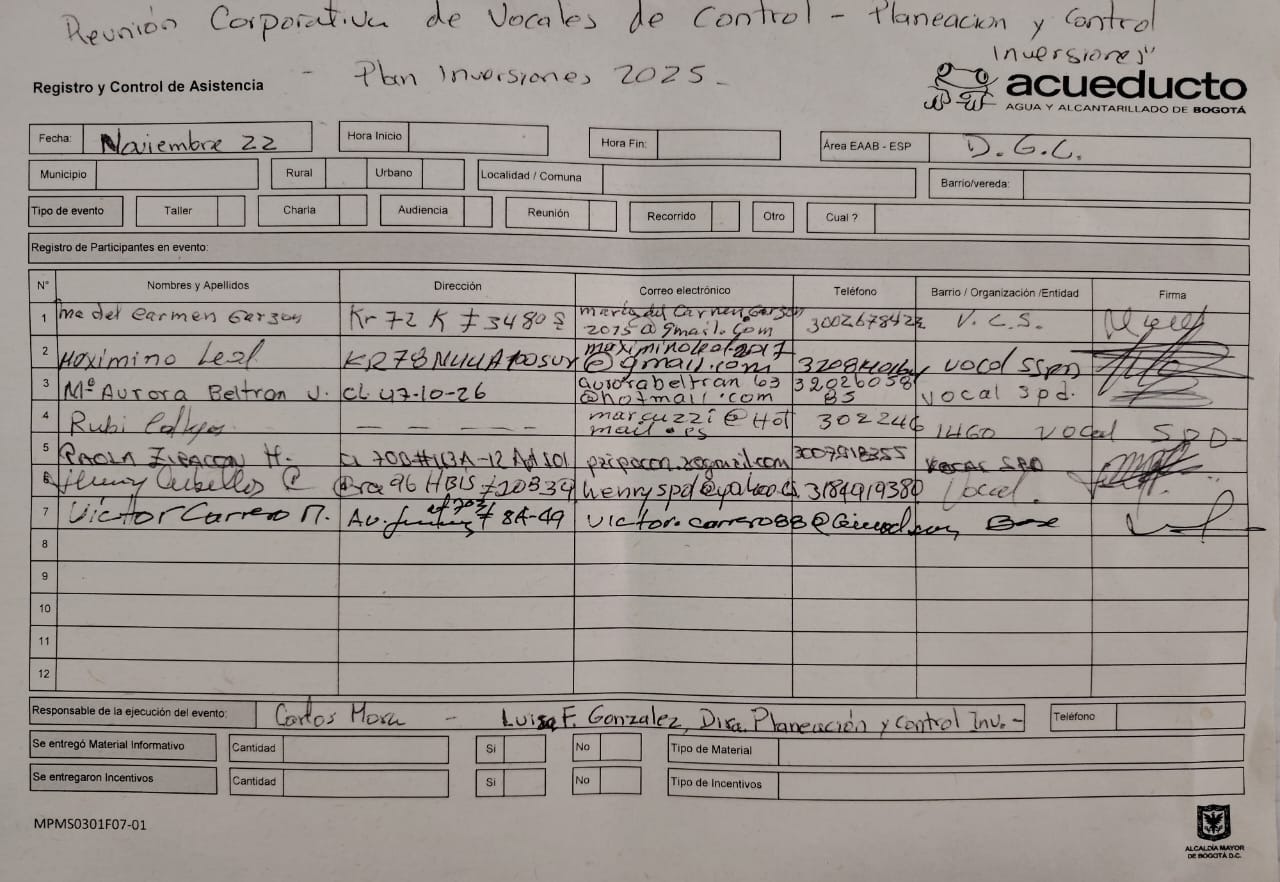 Reunión Corporativa de Vocales de Control - Planeacion y Control
Inversiones"
- Plan Inversiones 2025 -
Registro y Control de Asistencia
acueducto
AGUA Y ALCANTARILLADO DE BOGOTÁ
Fecha: Noviembre 22 Hora Inicio Hora Fin: Área EAAB - ESP D.G.C.
Municipio Rural Urbano Localidad / Comuna Barrio/vereda:
Tipo de evento Taller Charla Audiencia Reunión Recorrido Otro Cual ?
Registro de Participantes en evento:
N° Nombres y Apellidos Dirección Correo electrónico Teléfono Barrio / Organización /Entidad Firma
1 Ma del Carmen Garzon Kr 72 K # 3480 S maria del Carmen Garzon
2015@gmail.com 3002678422 V.C.S.
2 Maximino Leal maximinoleal2017
@gmail.com vocal SSPD
3 Mª Aurora Beltran V. CL 47-10-26 aurorabeltran 63
@hotmail.com 32026058
85 vocal spd.
4 Rubi — — — — marguzzi@Hot
mail.es 302246 1460 vocal SPD-
5 PAOLA H. 3007918355 VOCAL SPD
6 Henry Cubillos C henryspd@yahoo.es 3184919380 Vocal.
7 Victor Carrero M. # 8A-49 victor.carrero88@
8
9
10
11
12
Responsable de la ejecución del evento: Carlos Mora - Luisa F. Gonzalez, Dira. Planeación y Control Inv. - Teléfono
Se entregó Material Informativo Cantidad Si No Tipo de Material
Se entregaron Incentivos Cantidad Si No Tipo de Incentivos
MPMS0301F07-01
ALCALDÍA MAYOR
DE BOGOTÁ D.C.